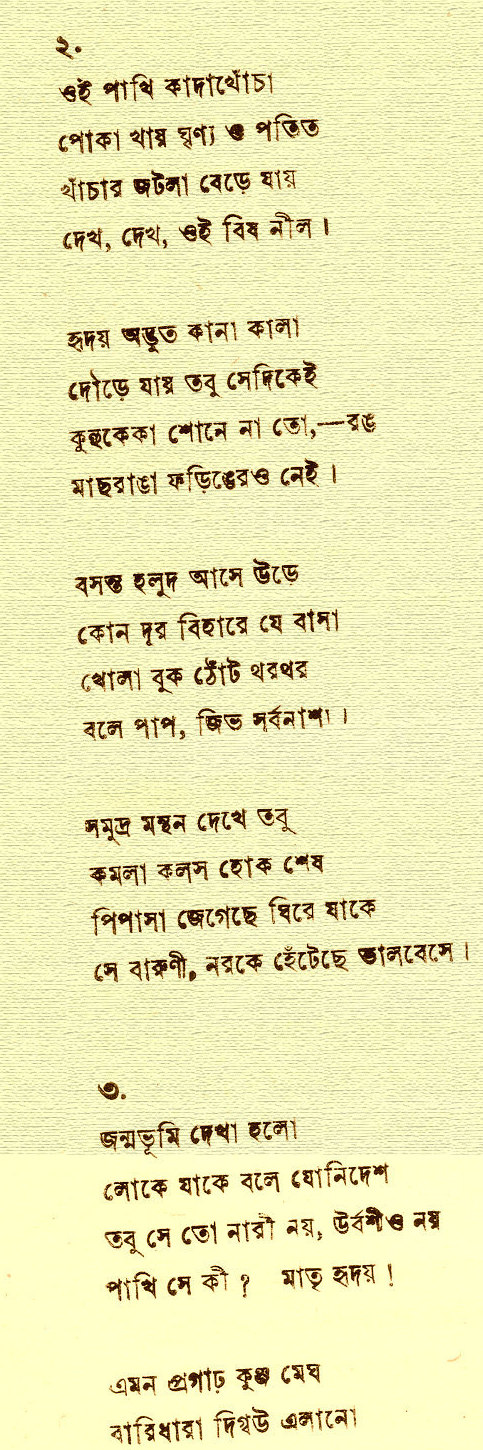 ২.
ওই পাখি কাদাখোঁচা
পোকা খায় ঘৃণ্য ও পতিত
খাঁচার জটলা বেড়ে যায়
দেখ, দেখ, ওই বিষ নীল।
হৃদয় অদ্ভুত কানা কালা
দৌড়ে যায় তবু সেদিকেই
কুহুকেকা শোনে না তো,—রঙ
মাছরাঙা ফড়িঙেরও নেই।
বসন্ত হলুদ আসে উড়ে
কোন দূর বিহারে যে বাসা
খোলা বুক ঠোঁট থরথর
বলে পাপ, জিভ সর্বনাশা।
সমুদ্র মন্থন দেখে তবু
কমলা কলস হোক শেষ
পিপাসা জেগেছে ঘিরে যাকে
সে বারুণী, নরকে হেঁটেছে ভালবেসে।
৩.
জন্মভূমি দেখা হলো
লোকে যাকে বলে যোনিদেশ
তবু সে তো নারী নয়, উর্বশীও নয়
পাখি সে কী? মাতৃ হৃদয়!
এমন প্রগাঢ় কুঞ্জ মেঘ
বারিধারা দিগ্বউ এলানো